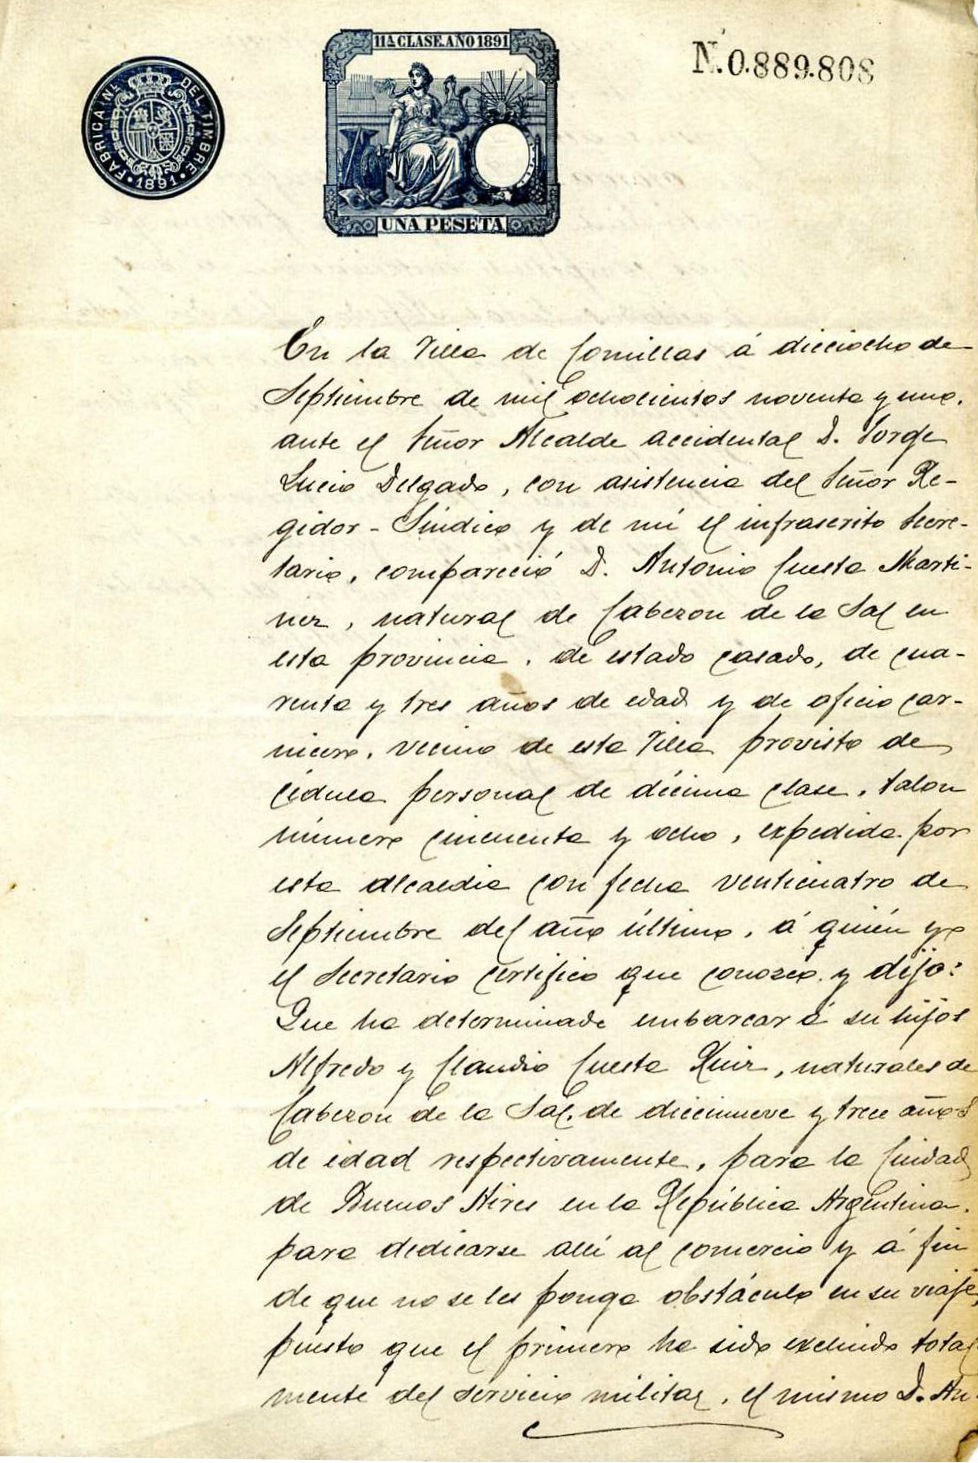 11ª CLASE. AÑO 1891
N.0.889.808
FABRICA NL. DEL TIMBRE
1891
UNA PESETA
En la Villa de Comillas á dieciocho de
Septiembre de mil ochocientos noventa y uno,
ante el Señor Alcalde accidental D. Jorge
Lucio Delgado, con asistencia del Señor Re-
gidor-Síndico y de mí el infrascrito Secre-
tario, compareció D. Antonio Cuesta Marti-
nez, natural de Cabezon de la Sal en
esta provincia, de estado casado, de cua-
renta y tres años de edad y de oficio car-
nicero, vecino de esta Villa provisto de
cédula personal de décima clase, talon
número cincuenta y ocho, expedida por
esta alcaldia con fecha venticuatro de
Septiembre del año último, á quién yo
el Secretario certifico que conozco y dijo:
Que ha determinado embarcar á su hijos
Alfredo y Claudio Cuesta Ruiz, naturales de
Cabezon de la Sal, de diecinueve y trece años
de edad respectivamente, para la Ciudad
de Buenos Aires en la República Argentina,
para dedicarse allí al comercio y á fin
de que no se les ponga obstáculo en su viaje,
puesto que el primero ha sido excluido total-
mente del servicio militar, el mismo D. An-